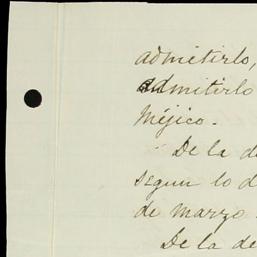 admitirlo,
admitirlo
Méjico.
De la de
segun lo d
de marzo
De la de